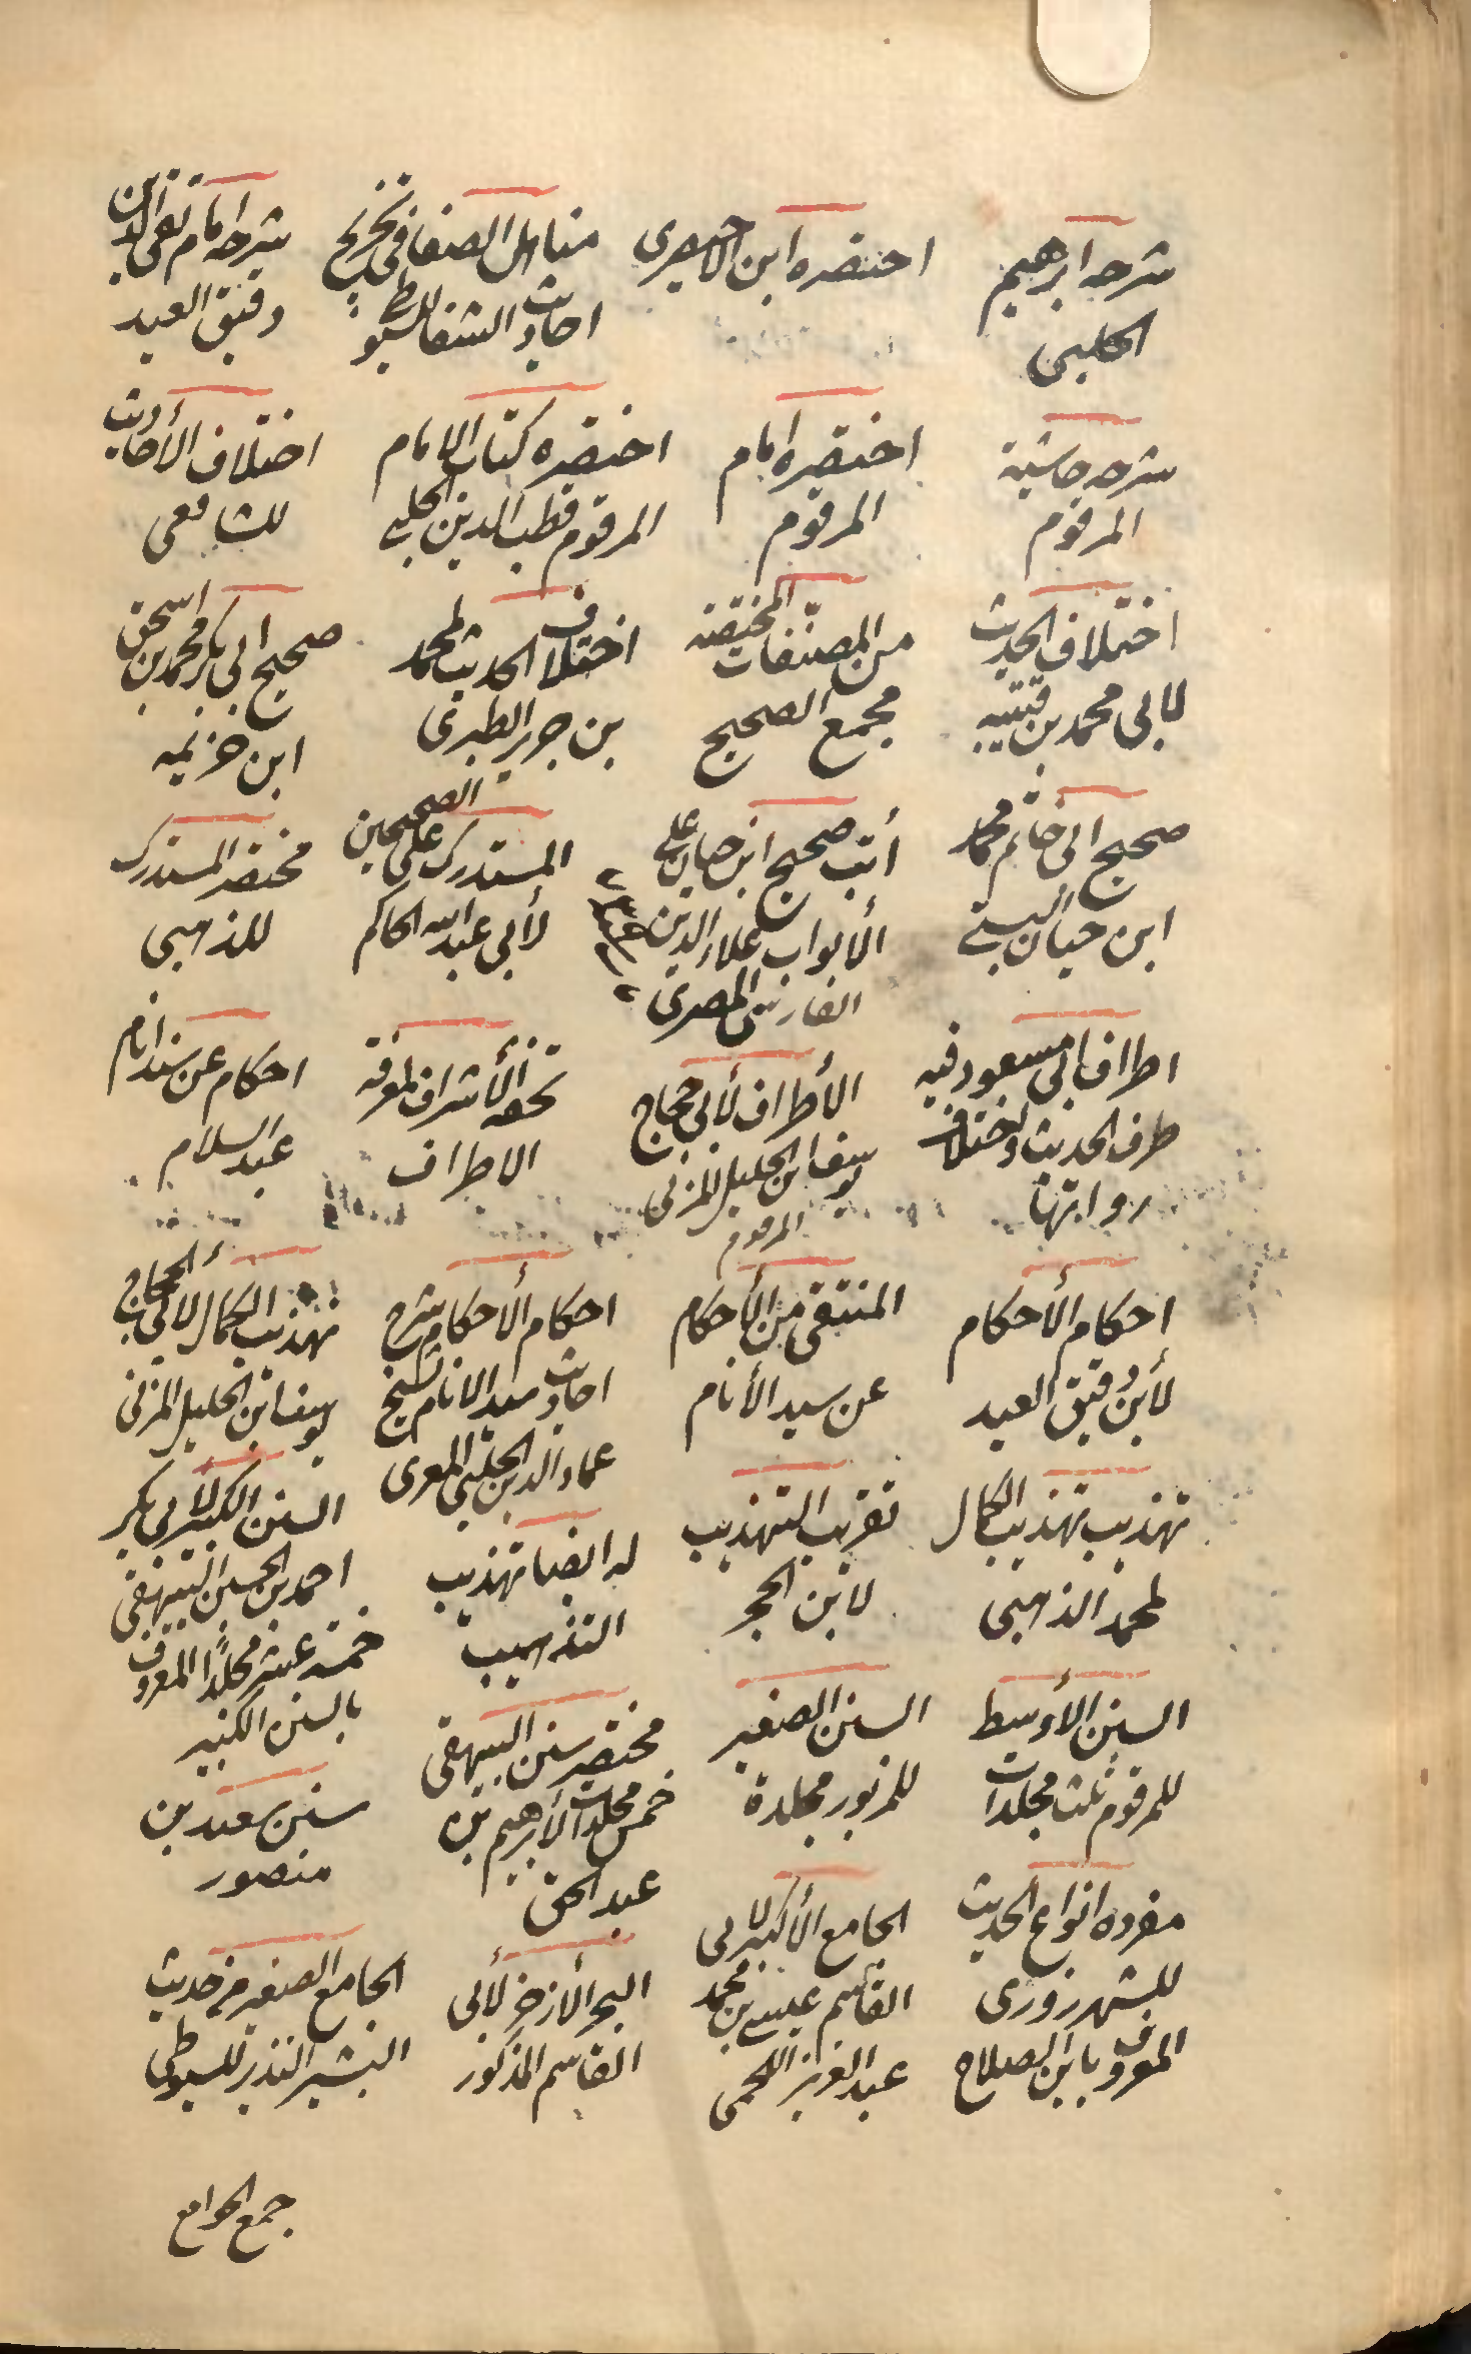 شرحه ابرهيم
الحلبى
اختصره ابن الاحيصرى
مناهل الصفا فى تخريج
احاديث الشفا للسيوطى
شرحه امام تقى الدين
دقيق العيد
شرحه حاشية
المرقوم
اختصره امام
المرقوم
اختصره كتاب الامام
المرقوم قطب الدين الحلبى
اختلاف الأحاديث
للشافعى
اختلاف الحديث
لابى محمد بن قتيبه
من المصنفات المختصة
مجمع الصحيح
اختلاف الحديث لمحمد
بن جرير الطبرى
صحيح ابى بكر محمد بن اسحق
ابن خزيمه
صحيح ابى حاتم محمد
ابن حبان البستى
رتب صحيح ابن حبان على
الأبواب علاء الدين
الفارسى المصرى
المستدرك على الصحيحين
لأبى عبد الله الحاكم
مختصر المستدرك
للذهبى
اطراف ابى مسعود فيه
طرف الحديث واختلاف
رواياتها
الأطراف لأبى حجاج
يوسف ابن الخليل المزنى
المرقوم
تحفة الأشراف لمعرفة
الاطراف
احكام عن سند انام
عبد السلام
احكام الأحكام
لأبن دقيق العيد
المنتقى من الأحكام
عن سيد الأنام
احكام الأحكام شرح
احاديث سيد الانام لشيخ
عماد الدين الحلبى المعرى
تهذيب الكمال لابى الحجاج
يوسف ابن الخليل المزنى
تهذيب تهذيب الكمال
لمحمد الذهبى
تقريب التهذيب
لابن الحجر
له ايضا تهذيب
التذهيب
السنن الكبير لابى بكر
احمد بن الحسين البيهقى
خمسة عشر مجلدًا المعروف
بالسنن الكبير
السنن الأوسط
للمرقوم ثلث مجلدات
السنن الصغير
للمزبور مجلدة
مختصر سنن البيهقى
خمس مجلدات لأبرهيم بن
عبد الحق
سنن سعيد بن
منصور
مفرده انواع الحديث
للشهرزورى
المعروف بابن الصلاح
الجامع الأكبر لابى
القاسم عيسى بن محمد
عبد العزيز اللخمى
البحر الأزخر لأبى
القاسم المذكور
الجامع الصغير من حديث
البشير النذير للسيوطى
جمع الجوامع